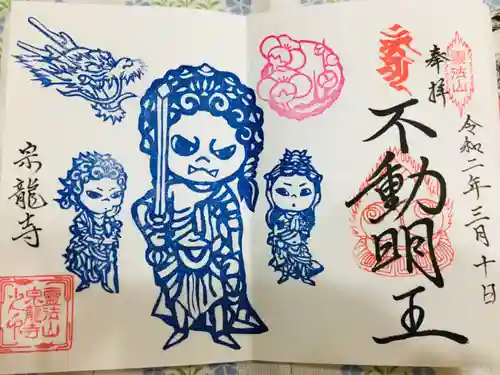 奉拝
霊法山
不動明王
令和二年三月十日
宗龍寺
霊法山
宗龍寺